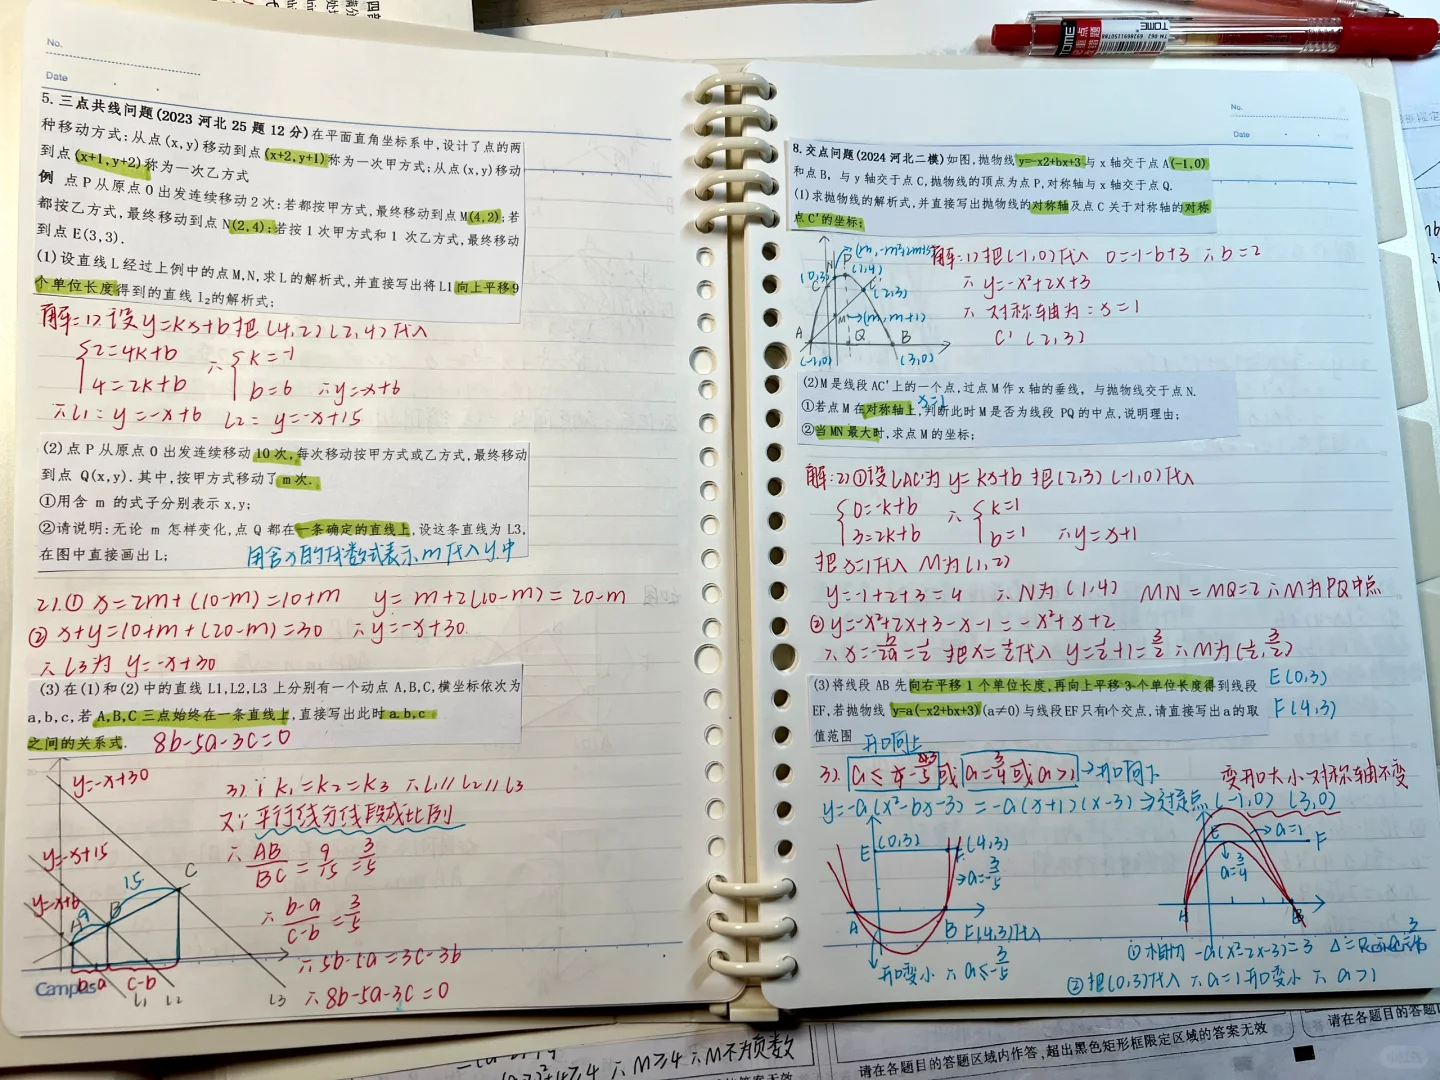 No.
Date
5. 三点共线问题(2023 河北 25 题 12 分)在平面直角坐标系中,设计了点的两
种移动方式:从点(x,y)移动到点(x+2,y+1)称为一次甲方式;从点(x,y)移动
到点(x+1,y+2)称为一次乙方式
例 点 P 从原点 O 出发连续移动 2 次:若都按甲方式,最终移动到点 M(4,2);若
都按乙方式,最终移动到点 N(2,4);若按 1 次甲方式和 1 次乙方式,最终移动
到点 E(3,3).
(1)设直线 L 经过上例中的点 M,N,求 L 的解析式,并直接写出将 L1 向上平移 9
个单位长度得到的直线 l₂的解析式;
解:1)设y=kx+b把(4,2)(2,4)代入
{2=4k+b ∴ {k=-1
4=2k+b b=6 ∴y=x+6
∴L1= y=-x+6 L2= y=-x+15
(2)点 P 从原点 O 出发连续移动 10 次,每次移动按甲方式或乙方式,最终移动
到点 Q(x,y).其中,按甲方式移动了 m 次.
①用含 m 的式子分别表示 x,y;
②请说明:无论 m 怎样变化,点 Q 都在一条确定的直线上,设这条直线为 L3,
在图中直接画出 L;
用含x的代数式表示m代入y中
2).① x=2m+(10-m)=10+m y=m+2(10-m)=20-m
② x+y=10+m+(20-m)=30 ∴y=-x+30.
∴L3为 y=-x+30
(3)在(1)和(2)中的直线 L1,L2,L3 上分别有一个动点 A,B,C,横坐标依次为
a,b,c,若 A,B,C 三点始终在一条直线上,直接写出此时 a.b.c
之间的关系式. 8b-5a-3c=0
y=-x+30
y=-x+15
y=-x+6
15
9
A
B
C
b-a
c-b
L1
L2
L3
Campus
3) ∵k₁=k₂=k₃ ∴L1∥L2∥L3
又∵平行线分线段成比例
∴ AB/BC = 9/15 = 3/5
∴ b-a/c-b = 3/5
∴5b-5a=3c-3b
∴8b-5a-3c=0
No.
Date
8.交点问题(2024 河北二模)如图,抛物线 y=-x2+bx+3 与 x 轴交于点 A(-1,0)
和点 B, 与 y 轴交于点 C,抛物线的顶点为点 P,对称轴与 x 轴交于点 Q.
(1)求抛物线的解析式,并直接写出抛物线的对称轴及点 C 关于对称轴的对称
点 C'的坐标;
N
P
(1,4)
(0,3)
C
(2,3)
M→(m,m+1)
A
Q
B
(-1,0)
(3,0)
解:1)把(-1,0)代入 0=-1-b+3 ∴b=2
∴ y=-x²+2x+3
∴ 对称轴为:x=1
C'(2,3)
(2)M 是线段 AC'上的一个点,过点 M 作 x 轴的垂线, 与抛物线交于点 N.
x=1
①若点 M 在对称轴上,判断此时 M 是否为线段 PQ 的中点,说明理由;
②当 MN 最大时,求点 M 的坐标;
解:2)①设LAC'为 y=kx+b 把(2,3)(-1,0)代入
{0=-k+b ∴ {k=1
3=2k+b b=1 ∴y=x+1
把x=1代入 M为(1,2)
y=-1+2+3=4 ∴N为(1,4) MN=MQ=2∴M为PQ中点
② y=-x²+2x+3-x-1=-x²+x+2
∴x=-b/2a=1/2 把x=1/2代入 y=1/2+1=3/2 ∴M为(1/2,3/2)
(3)将线段 AB 先向右平移 1 个单位长度,再向上平移 3 个单位长度得到线段
EF,若抛物线 y=a(-x2+bx+3)(a≠0)与线段 EF 只有1个交点,请直接写出 a 的取
值范围
E(0,3)
F(4,3)
开口向上
3). a≤-3/5 或 a=3/4或a>1→开口向下
变开口大小对称轴不变
y=-a(x²-bx-3)=-a(x+1)(x-3)→过定点(-1,0)(3,0)
E
(0,3)
(4,3)
F
→a=-3/5
A
B
F(4,3)代入
开口变小 ∴a≤-3/5
E
→a=1
F
a=3/4
A
B
①相切 -a(x²-2x-3)=3
②把(0,3)代入 ∴a=1开口变小 ∴ a>1
∴M≥4 ∴M不为负数
请在各题目的答题区域内作答,超出黑色矩形框限定区域的答案无效
请在各题目的答题区
TOME